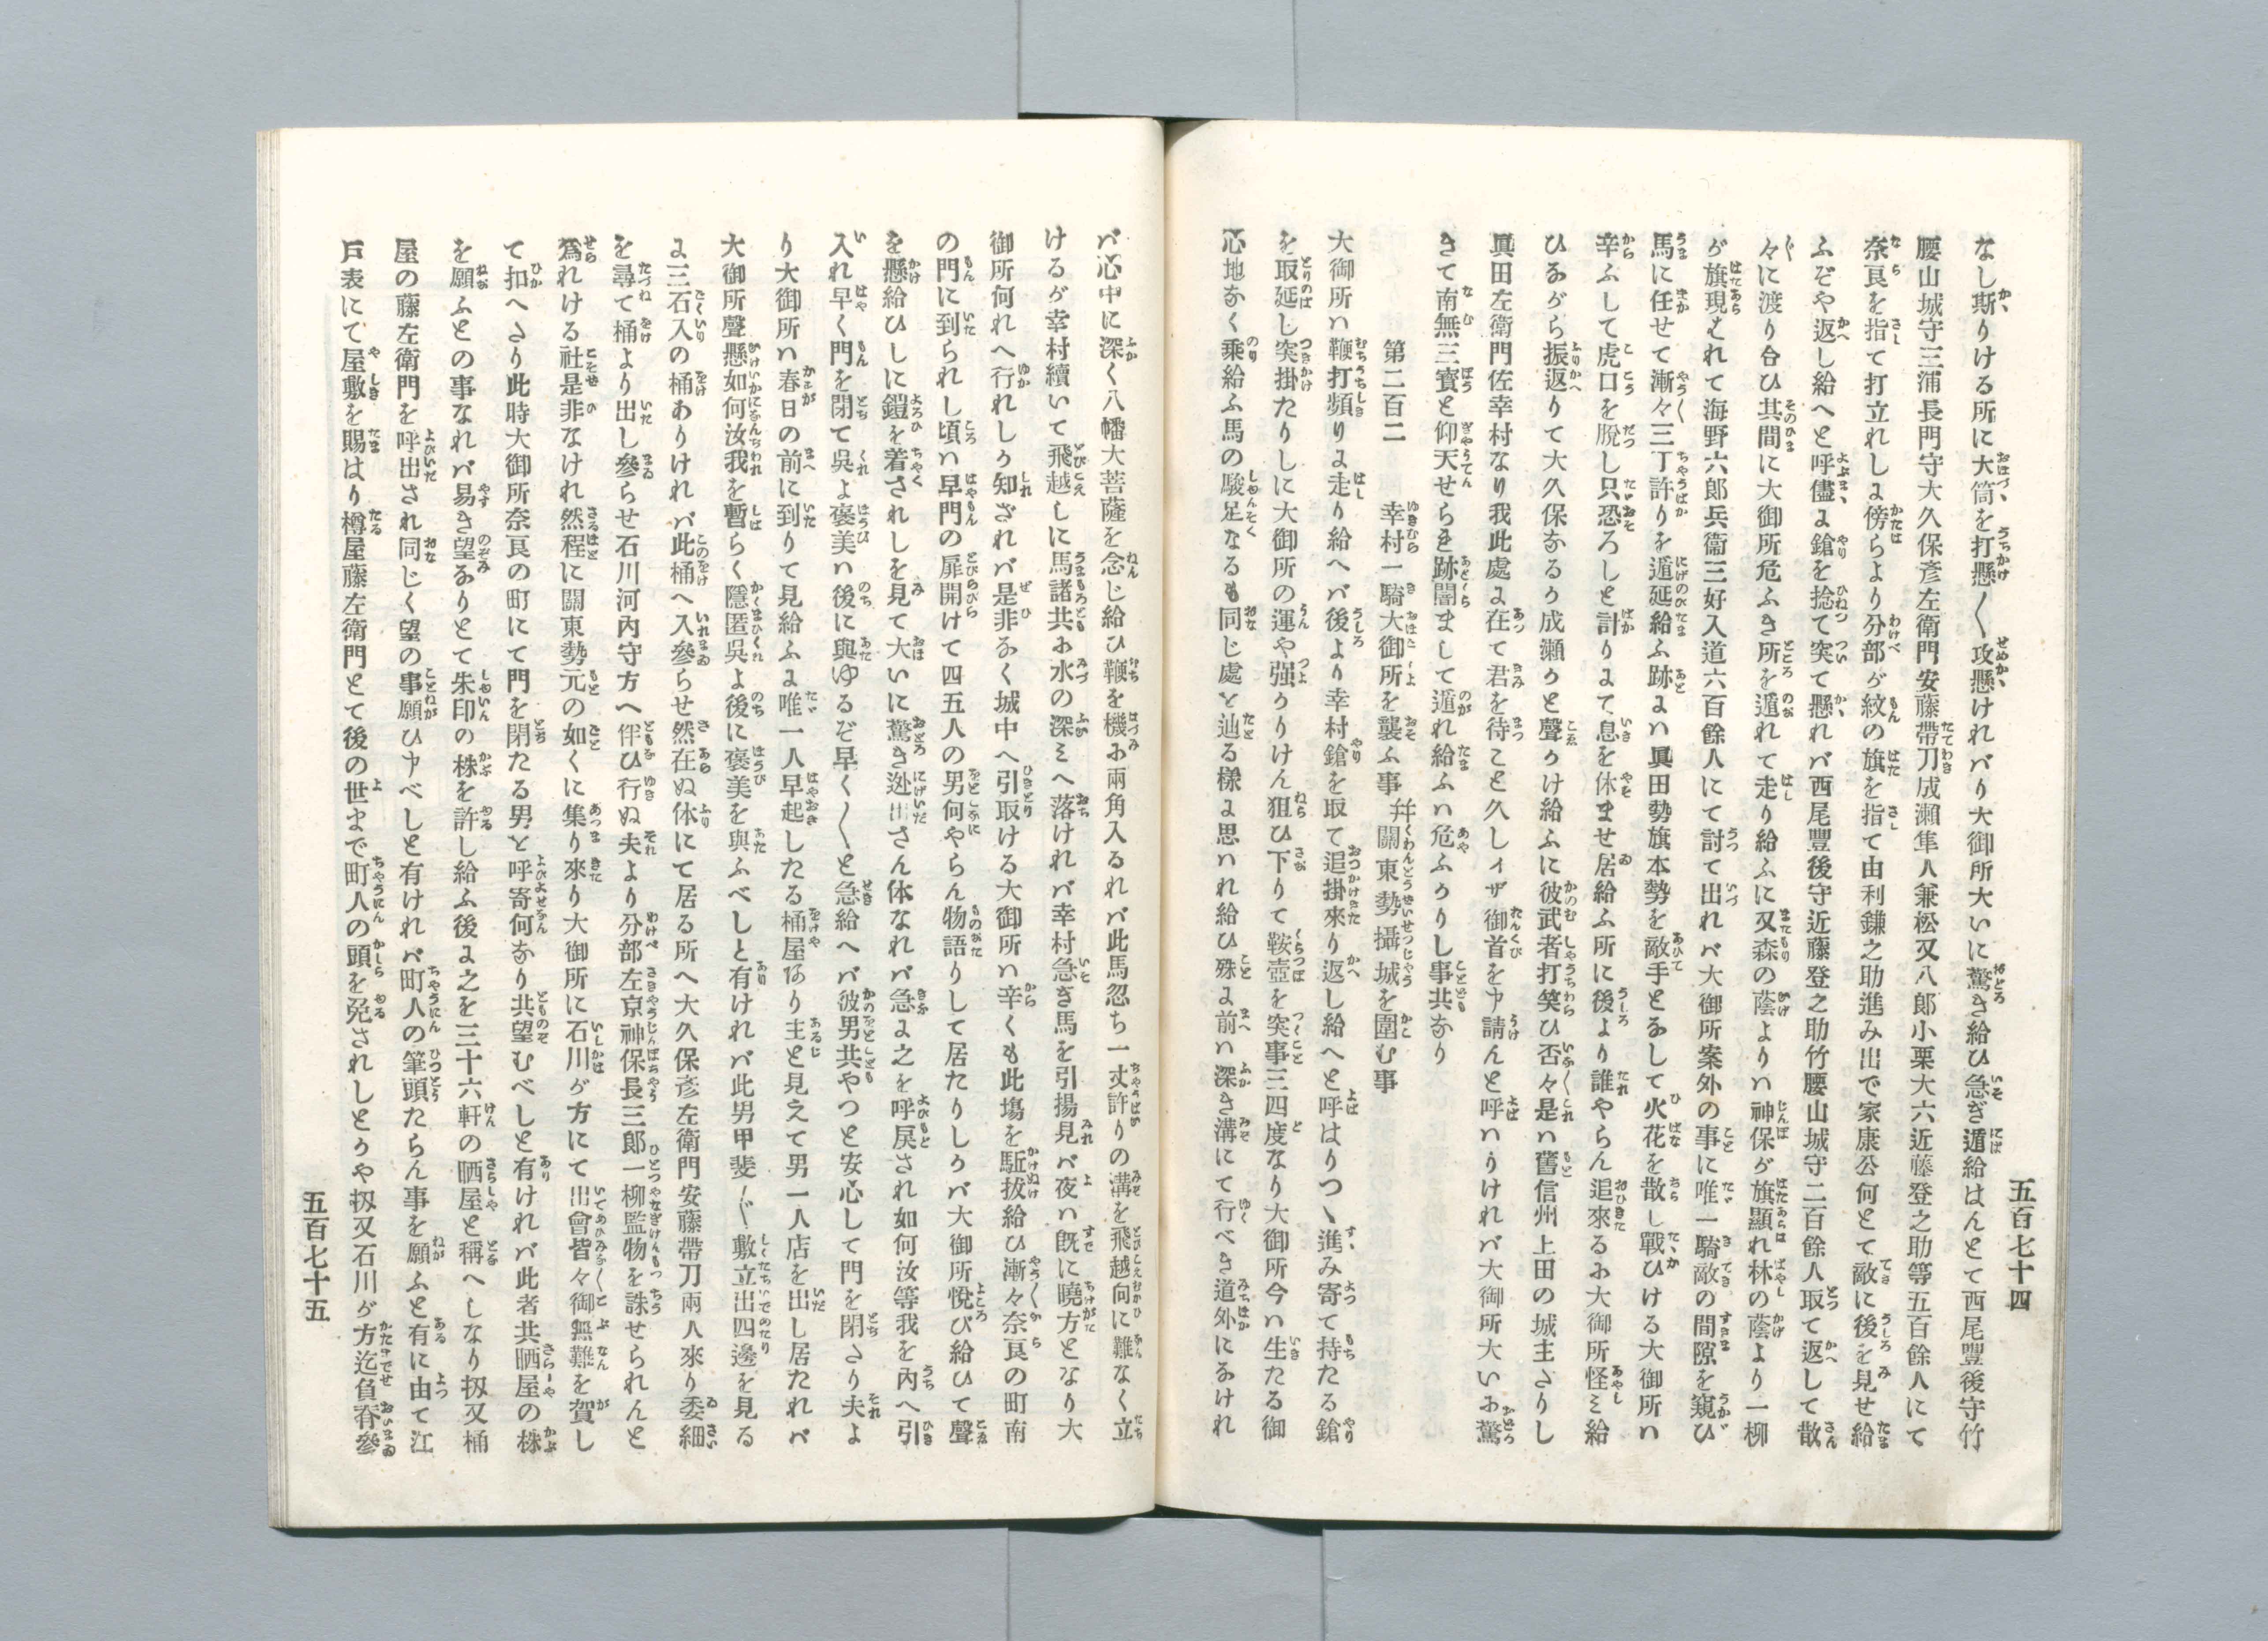 五百七十四
なし斯りける所に大筒を打懸〳〵攻懸ければり大御所大いに驚き給ひ急ぎ遁給はんとて西尾豐後守竹
腰山城守三浦長門守大久保彦左衛門安藤帶刀成瀬隼人兼松又八郎小栗大六近藤登之助等五百餘人にて
奈良を指て打立れしに傍らより分部が紋の旗を指て由利鎌之助進み出で家康公何とて敵に後を見せ給
ふぞや返し給へと呼儘に鎗を捻て突て懸れバ西尾豐後守近藤登之助竹腰山城守二百餘人取て返して散
々に渡り合ひ其間に大御所危ふき所を遁れて走り給ふに又森の蔭よりハ神保が旗顯れ林の蔭より一柳
が旗現はれて海野六郎兵衞三好入道六百餘人にて討て出れバ大御所案外の事に唯一騎敵の間隙を窺ひ
馬に任せて漸々三丁許りを遁延給ふ跡にハ眞田勢旗本勢を敵手となして火花を散し戰ひける大御所ハ
辛ふして虎口を脱し只恐ろしと計りにて息を休ませ居給ふ所に後より誰やらん追來るお大御所怪ミ給
ひながら振返りて大久保なるか成瀬かと聲かけ給ふに彼武者打笑ひ否々是ハ舊信州上田の城主さりし
眞田左衛門佐幸村なり我此處に在て君を待こと久しイザ御首を申請んと呼ハりけれバ大御所大いお驚
きて南無三寳と仰天せらき跡闇まして遁れ給ふハ危ふかりし事共なり
第二百二　幸村一騎大御所を襲ふ事　幷關東勢攝城を圍む事
大御所ハ鞭打頻りに走り給へバ後より幸村鎗を取て追掛來り返し給へと呼はりつヽ進み寄て持たる鎗
を取延し突掛たりしに大御所の運や强かりけん狙ひ下りて鞍壺を突事三四度なり大御所今ハ生たる御
心地なく乘給ふ馬の駿足なるも同じ處と辿る樣に思ハれ給ひ殊に前ハ深き溝にて行べき道外になけれ
バ心中に深く八幡大菩薩を念じ給ひ鞭を機お兩角入るれバ此馬忽ち一丈許りの溝を飛越向に難なく立
けるが幸村續いて飛越しに馬諸共お水の深ミへ落けれバ幸村急ぎ馬を引揚見バ夜ハ既に曉方となり大
御所何れへ行れしか知ざれバ是非なく城中へ引取ける大御所ハ辛くも此塲を駈拔給ひ漸々奈良の町南
の門に到られし頃ハ早門の扉開けて四五人の男何やらん物語りして居たりしかバ大御所悅び給ひて聲
を懸給ひしに鎧を着されしを見て大いに驚き迯出さん体なれバ急に之を呼戻され如何汝等我を內へ引
入れ早く門を閉て吳よ褒美ハ後に與ゆるぞ早く〳〵と急給へバ彼男共やつと安心して門を閉さり夫よ
り大御所ハ春日の前に到りて見給ふに唯一人早起したる桶屋あり主と見えて男一人店を出し居たれバ
大御所聲懸如何汝我を暫らく隱匿吳よ後に褒美を與ふべしと有けれバ此男甲斐〴〵敷立出四邊を見る
に三石入の桶ありけれバ此桶へ入參らせ然在ぬ体にて居る所へ大久保彦左衛門安藤帶刀兩人來り委細
を尋て桶より出し參らせ石川河內守方へ伴ひ行ぬ夫より分部左京神保長三郎一柳監物を誅せられんと
爲れける社是非なけれ然程に關東勢元の如くに集り來り大御所に石川が方にて出會皆々御無難を賀し
て扣へさり此時大御所奈良の町にて門を閉たる男と呼寄何なり共望むべしと有けれバ此者共晒屋の株
を願ふとの事なれバ易き望なりとて朱印の株を許し給ふ後に之を三十六軒の晒屋と稱へしなり扨又桶
屋の藤左衛門を呼出され同じく望の事願ひ申べしと有けれバ町人の筆頭たらん事を願ふと有に由て江
戸表にて屋敷を賜はり樽屋藤左衛門とて後の世まで町人の頭を免されしとかや扨又石川が方迄負脊參
五百七十五